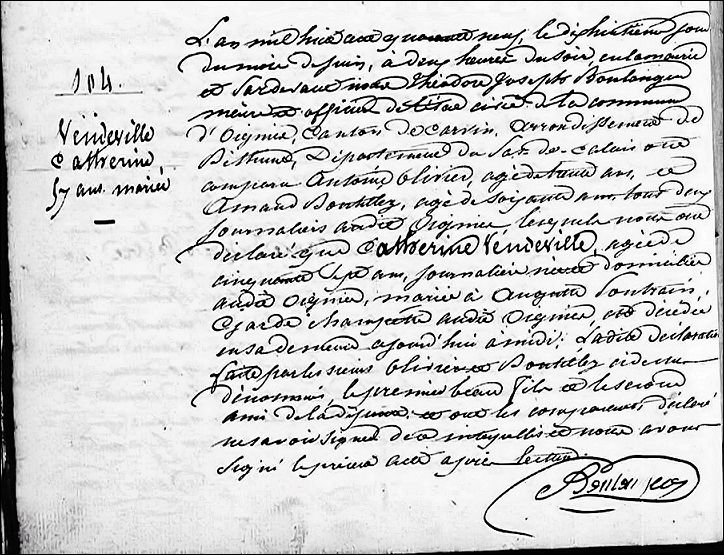 104.
Vendeville
Catherine,
57 ans. mariée
L'an mil huit cent quarante neuf, le dixhuitième jour
du mois de juin, à deux heures du soir, en la mairie
et pardevant nous Théodore Joseph Boulanger
maire et officier de l'état civil de la commune
d'Oignies, Canton de Carvin, arrondissement de
Béthune, Département du Pas-de-Calais ont
comparu Antoine Olivier, agé de trente ans, et
Amand Bouttelez, agé de soixante ans, tous deux
journaliers audit Oignies, lesquels nous ont
déclaré que Catherine Vendeville, agée de
cinquante sept ans, journalière née et domiciliée
audit Oignies, mariée à Auguste
Garde champêtre audit Oignies, est décédée
en sa demeure ajourd'hui à midi. Ladite déclaration
faite par les sieurs Olivier et Bouttelez ci dessus
dénommés, le premier beau fils et le second
ami de la défunte, et ont les comparans, déclaré
ne savoir signer de ce interpellés et nous avons
signé le présent acte après lecture.
Boulanger